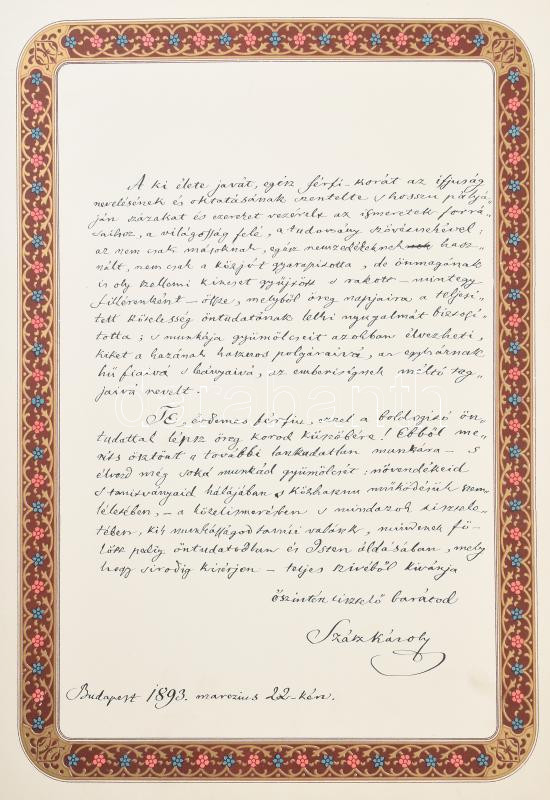 A ki élete javát, egész férfi-korát az ifjuság
nevelésének és oktatásának szentelte s hosszu pályá„
ján százakat és ezereket vezérelt az ismeretek forrá„
saihoz, a világosság felé, a tudomány szövétnekével;
az nem csak másoknak, egész nemzedékeknek hasz„
nált, nem csak a közjót gyarapitotta, de önmagának
is oly szellemi kincset gyűjtött s rakott – mintegy
fillérenként – össze, melyből öreg napjaira a teljesi„
tett kötelesség öntudatának lelki nyugalmát biztosi„
totta; s munkája gyümölcseit azokban élvezheti,
kiket a hazának hasznos polgáraivá, az egyháznak
hű fiaivá s leányaivá, az emberiségnek méltó tag„
jaivá nevelt.
Te, érdemes férfiu, ezzel a boldogitó ön„
tudattal lépsz öreg korod küszöbére! Ebből me„
rits ösztönt a további lankadatlan munkára – s
élvezd még soká munkád gyümölcsét: növendékeid
s tanitványaid hálájában s közhasznu működésük szem„
léletében, – a közelismerésben s mindazok tisztele„
tében, kik munkásságod tanúi valánk, mindenek fö„
lött pedig öntudatodban és Isten áldásában, mely
hogy sirodig kisérjen – teljes szivéből kivánja
őszintén tisztelő barátod
Szász Károly
Budapest 1893. marczius 22-kén.
darabanth